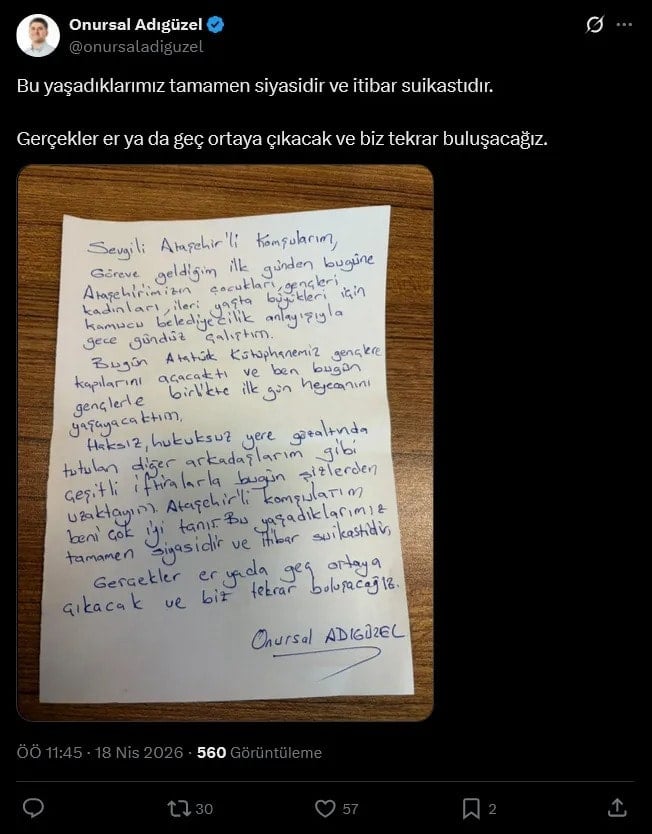 Onursal Adıgüzel
@onursaladiguzel
Bu yaşadıklarımız tamamen siyasidir ve itibar suikastıdır.
Gerçekler er ya da geç ortaya çıkacak ve biz tekrar buluşacağız.
Sevgili Ataşehir'li Komşularım,
Göreve geldiğim ilk günden bugüne
Ataşehirimizin çocukları, gençleri,
kadınları, ileri yaşta büyükleri için
kamucu belediyecilik anlayışıyla
gece gündüz çalıştım.
Bugün Atatürk Kütüphanemiz gençlere
kapılarını açacaktı ve ben bugün
gençlerle birlikte ilk gün heyecanını
yaşayacaktım.
Haksız, hukuksuz yere gözaltında
tutulan diğer arkadaşlarım gibi
çeşitli iftiralarla bugün sizlerden
uzaktayım. Ataşehir'li komşularım
beni çok iyi tanır. Bu yaşadıklarımız
tamamen siyasidir ve itibar suikastidir,
Gerçekler er yada geç ortaya
çıkacak ve biz tekrar buluşacağız.
Onursal ADIGÜZEL
ÖÖ 11:45 · 18 Nis 2026 · 560 Görüntüleme
30 57 2